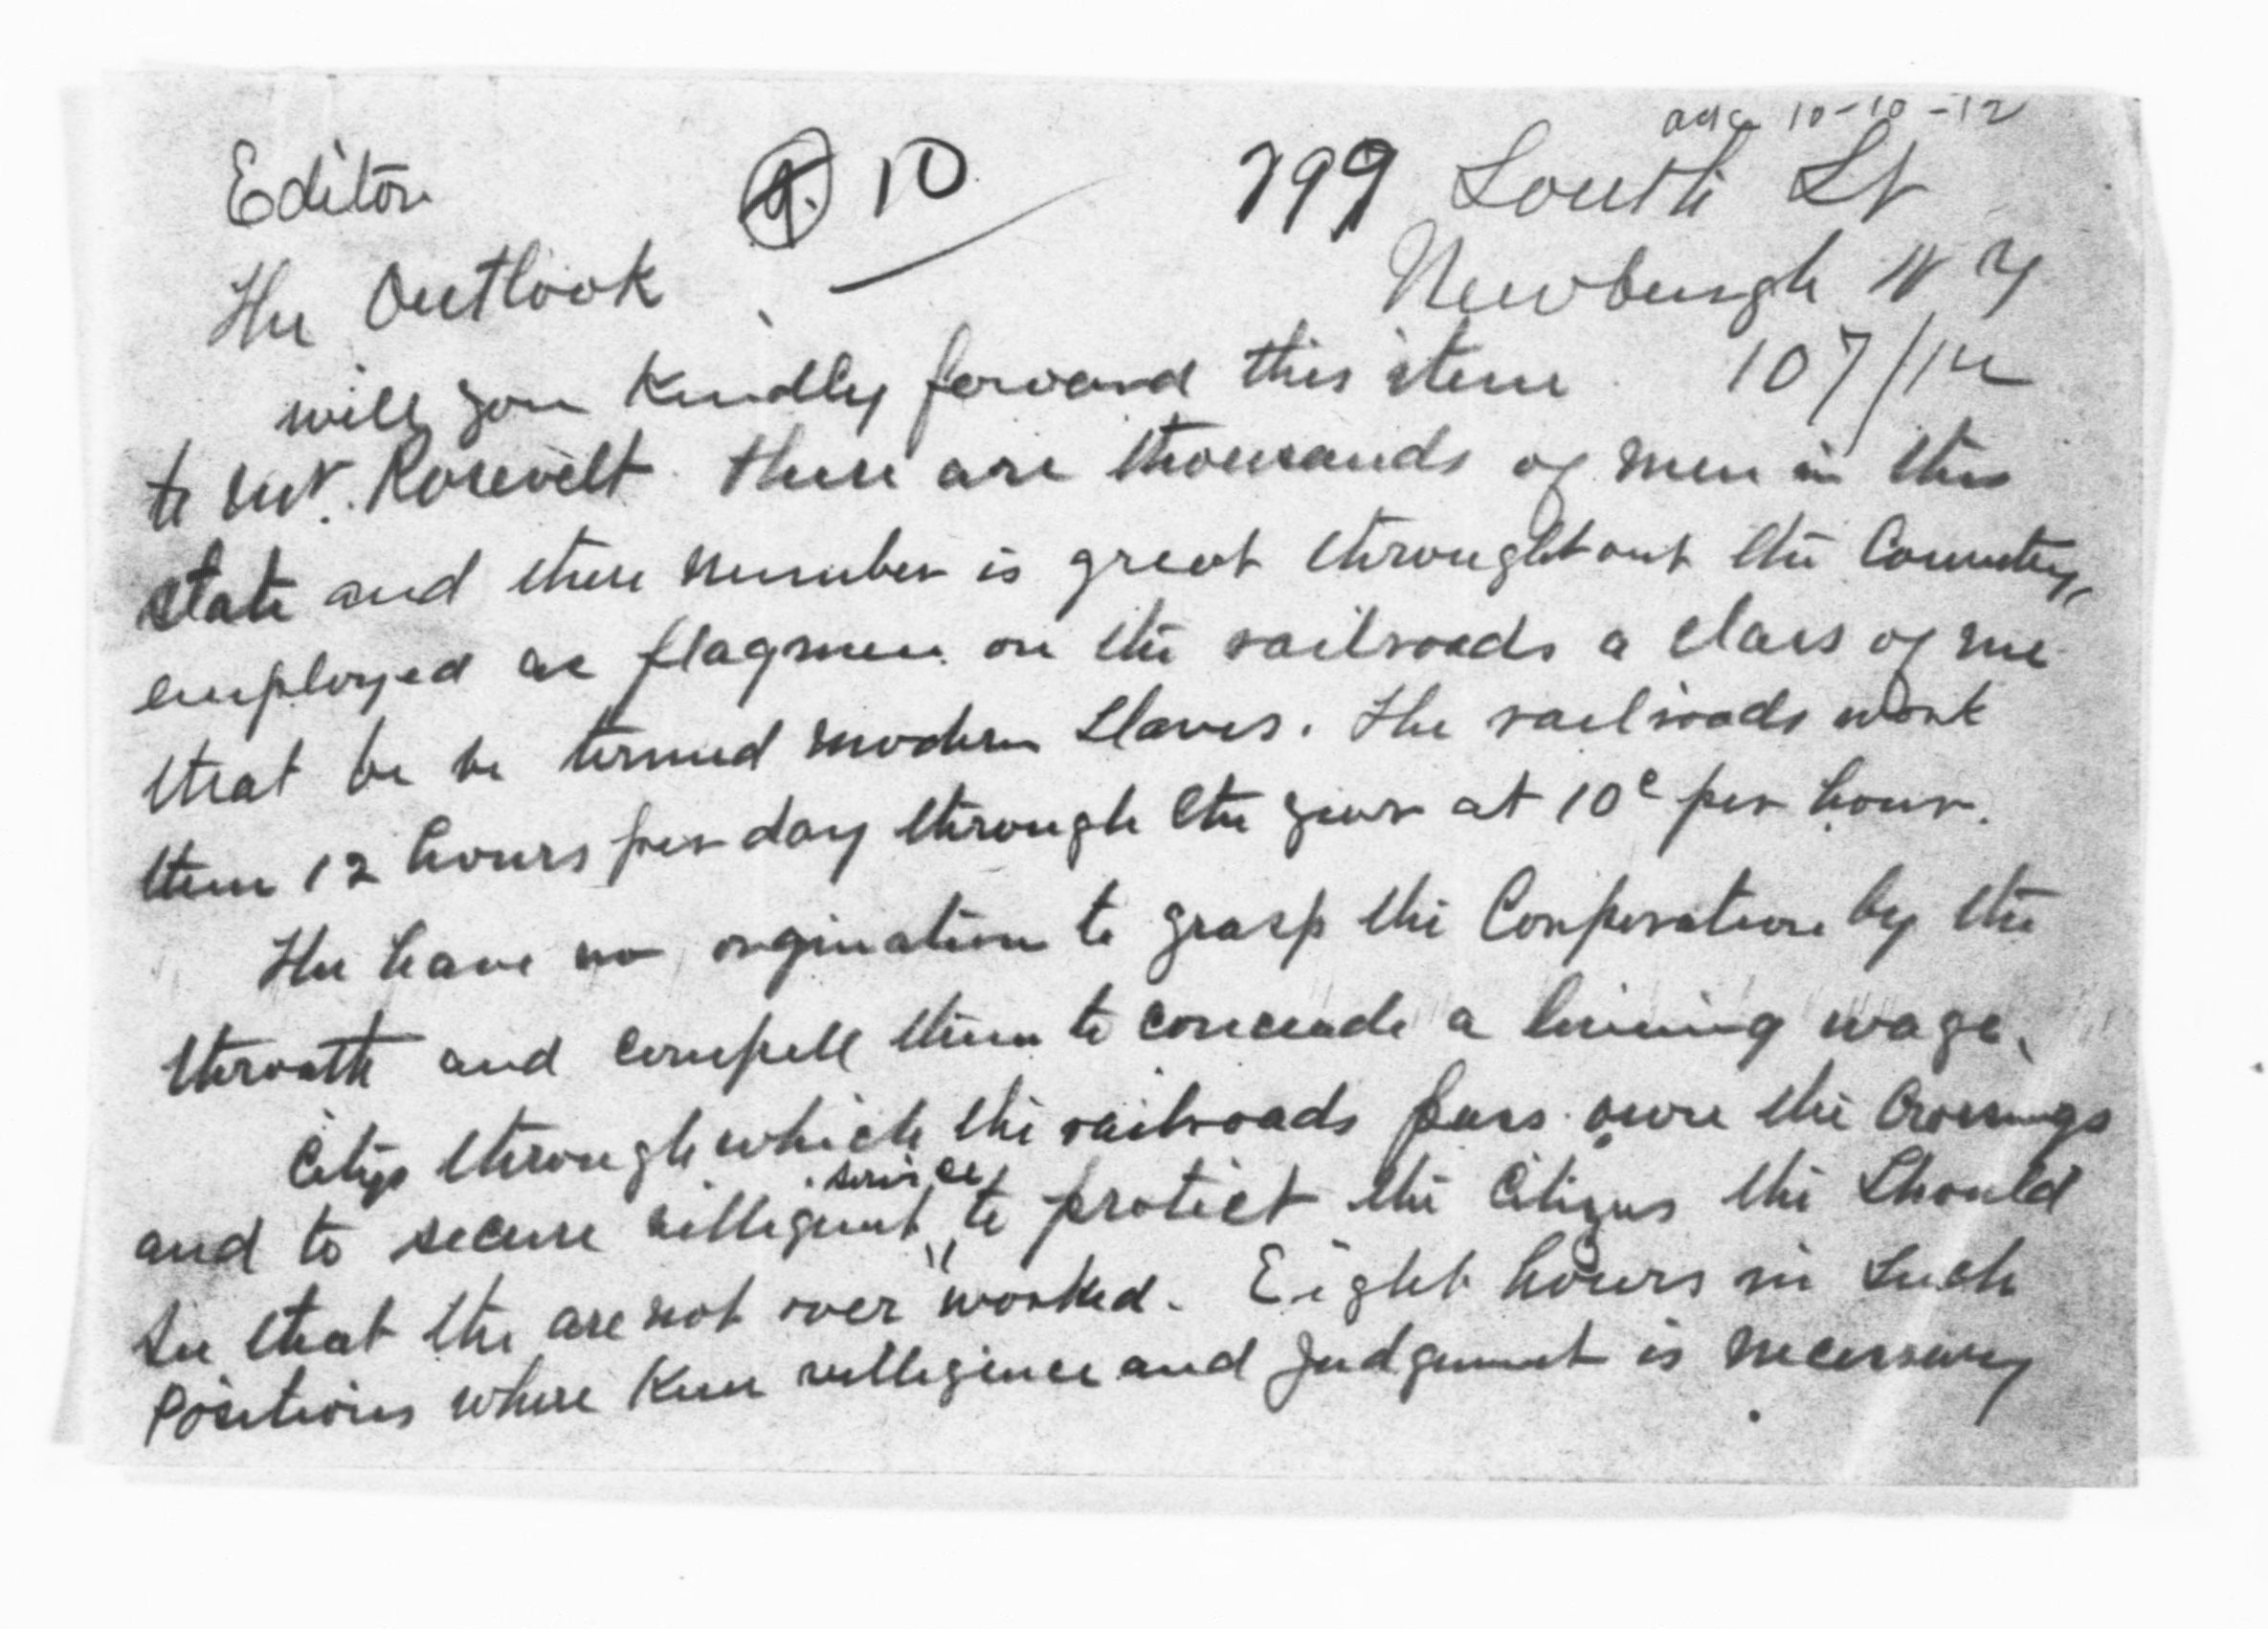 ack 10-10-12
Editor 10 299 South St
The Outlook Newburgh N Y
will you Kindly forward this item 10 7/12
to Mr. Rosevelt. there are thousands of men in this
state and there number is great throught out the Country,
employed as flagmen on the railroads a class of me
that be be termed modern Slaves. The railroads work
them 12 hours per day through the year at 10c per hour.
The have no orgination to grasp the Corperation by the
throath and compell them to conceade a living wage.
Citys through which the railroads pass owne the Crossings
service
and to secure to protect the Citizens the Should
see that the are not over worked. Eight hours in Such
Positions where Keen and Judgement is necessary